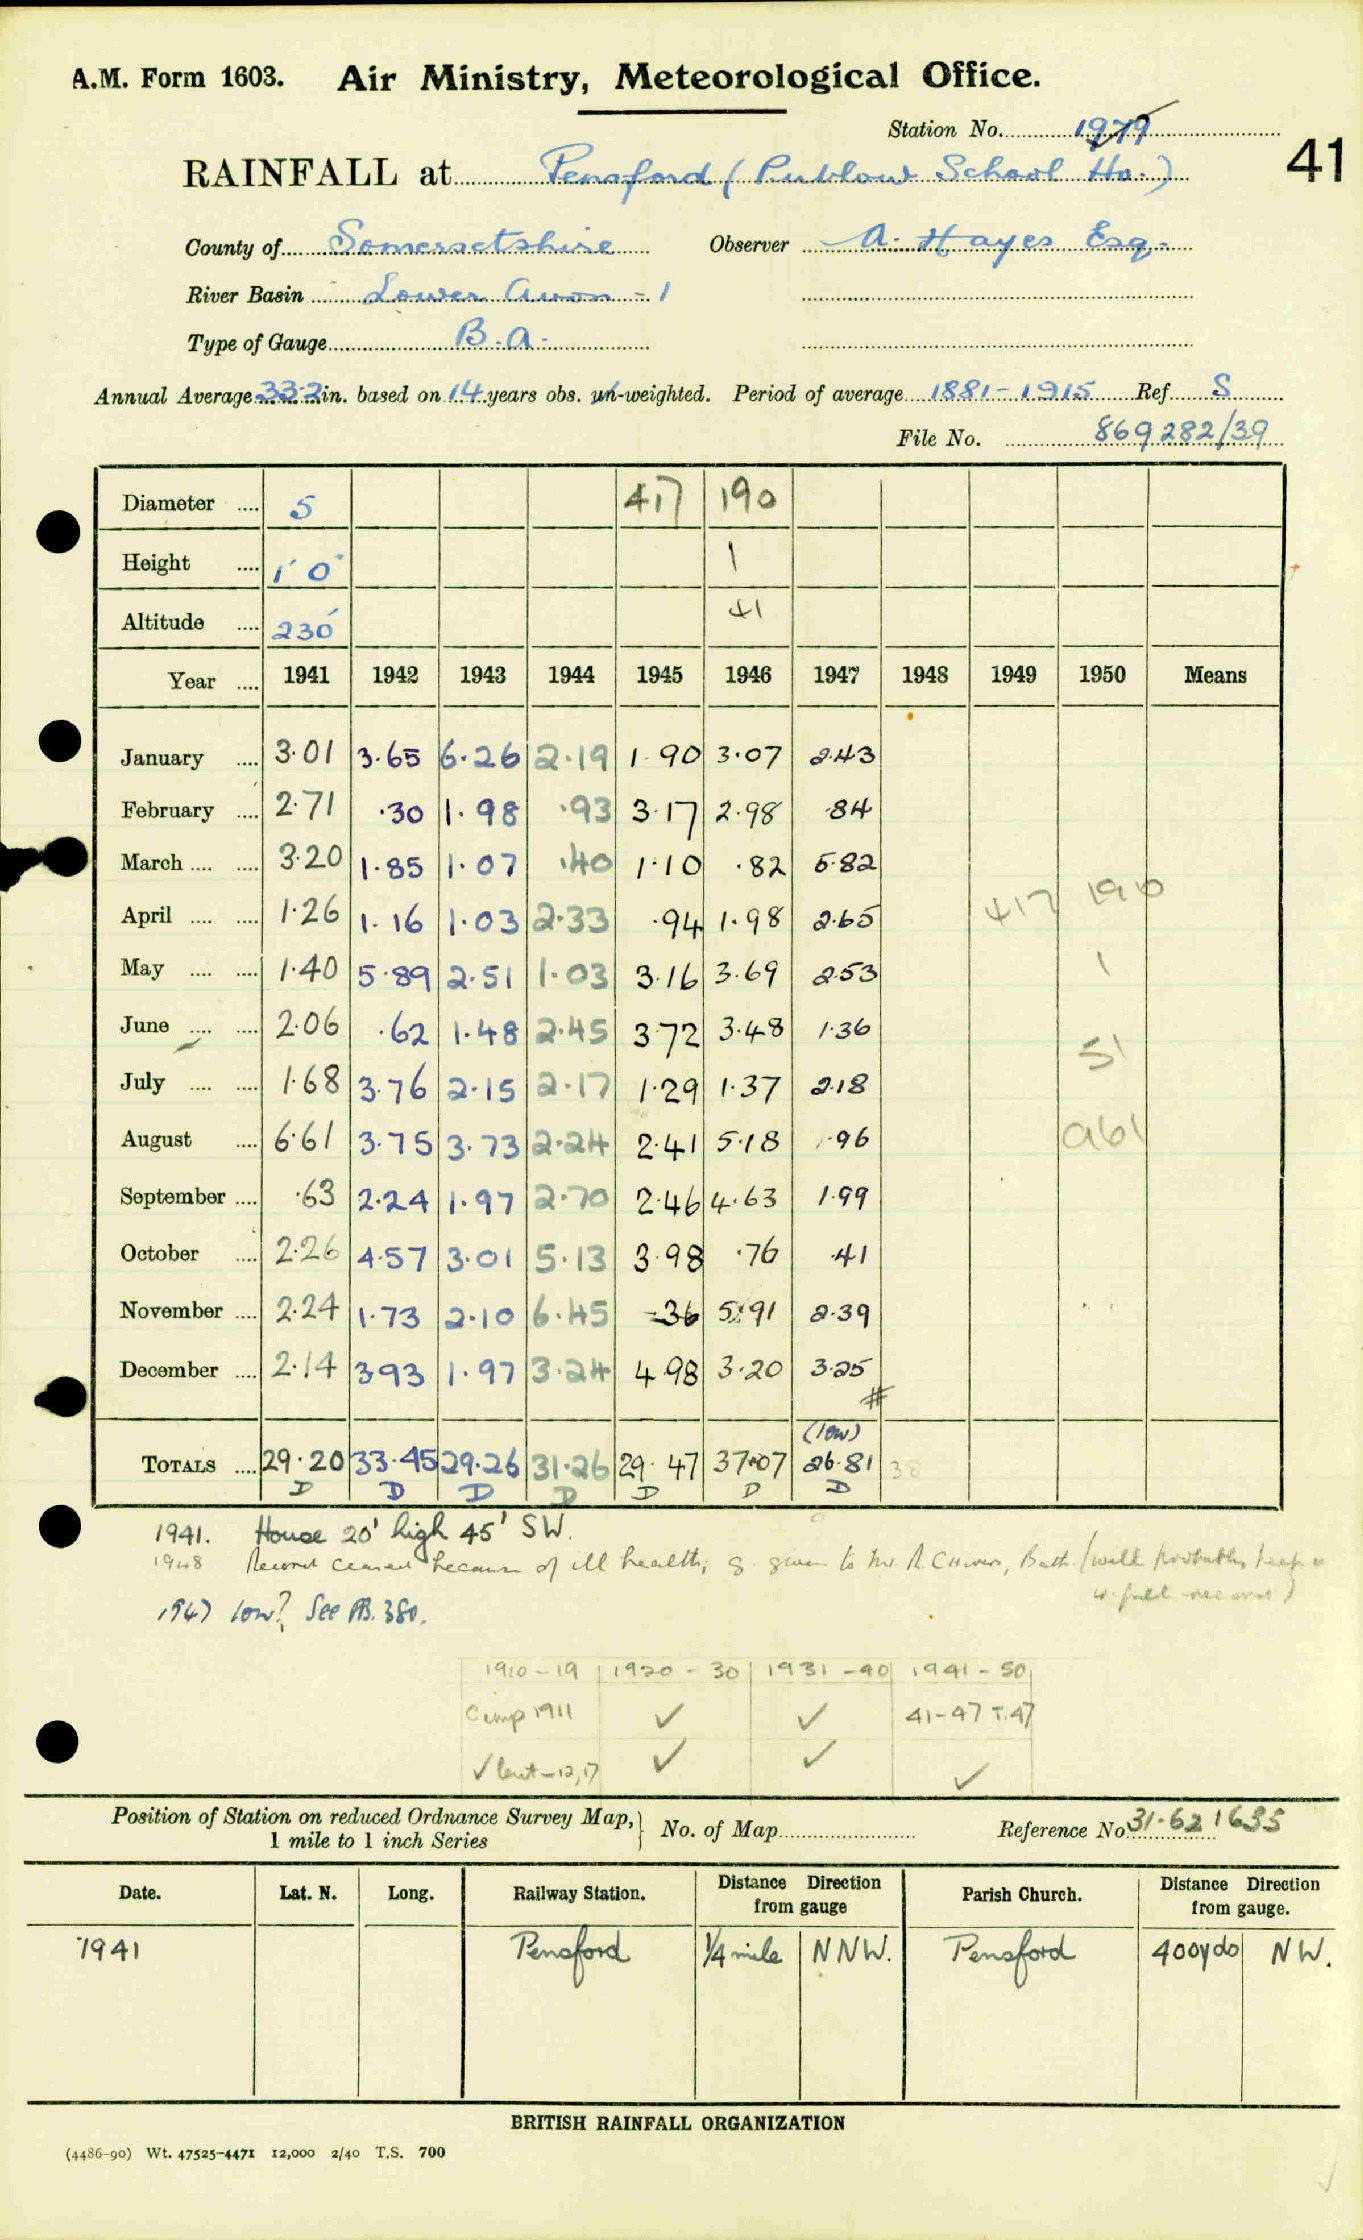 A.M. Form 1603. Air Ministry, Meteorological Office.
Station No. 1979
41
RAINFALL at Pensford (Publow School Ho.)
County of Somersetshire Observer A. Hayes Esq.
River Basin Lower Avon - 1
Type of Gauge B.A.
Annual Average 33.2 in. based on 14 years obs. un-weighted. Period of average 1881-1915 Ref S
File No. 869282/39
Diameter .... 5 417 190
Height .... 1' 0" 1
Altitude .... 230' 41
Year .... 1941 1942 1943 1944 1945 1946 1947 1948 1949 1950 Means
January .... 3.01 3.65 6.26 2.19 1.90 3.07 2.43
February .... 2.71 .30 1.98 .93 3.17 2.98 .84
March .... .... 3.20 1.85 1.07 .40 1.10 .82 5.82
April .... .... 1.26 1.16 1.03 2.33 .94 1.98 2.65 417 190
May .... .... 1.40 5.89 2.51 1.03 3.16 3.69 2.53 1
June .... .... 2.06 .62 1.48 2.45 3.72 3.48 1.36 51
July .... .... 1.68 3.76 2.15 2.17 1.29 1.37 2.18
August .... 6.61 3.75 3.73 2.24 2.41 5.18 .96 961
September .... .63 2.24 1.97 2.70 2.46 4.63 1.99
October .... 2.26 4.57 3.01 5.13 3.98 .76 .41
November .... 2.24 1.73 2.10 6.45 .36 5.91 2.39
December .... 2.14 3.93 1.97 3.24 4.98 3.20 3.25
#
(low)
TOTALS .... 29.20 33.45 29.26 31.26 29.47 37.07 26.81 38
D D D D D D D
1941. House 20' high 45' SW.
1948 Record ceased because of ill health, g. given to Mr. R. Chivers, Bath. (will probably keep a
full record)
1947 low? See 380.
1910-19 1920-30 1931-40 1941-50
Comp 1911 ✓ ✓ 41-47 T.47
✓ but - 12, 17 ✓ ✓ ✓
Position of Station on reduced Ordnance Survey Map, 1 mile to 1 inch Series } No. of Map Reference No. 31.621635
Date. Lat. N. Long. Railway Station. Distance Direction from gauge Parish Church. Distance Direction from gauge.
1941 Pensford 1/4 mile NNW. Pensford 400yds NW.
BRITISH RAINFALL ORGANIZATION
(4486-90) Wt. 47525-4471 12,000 2/40 T.S. 700